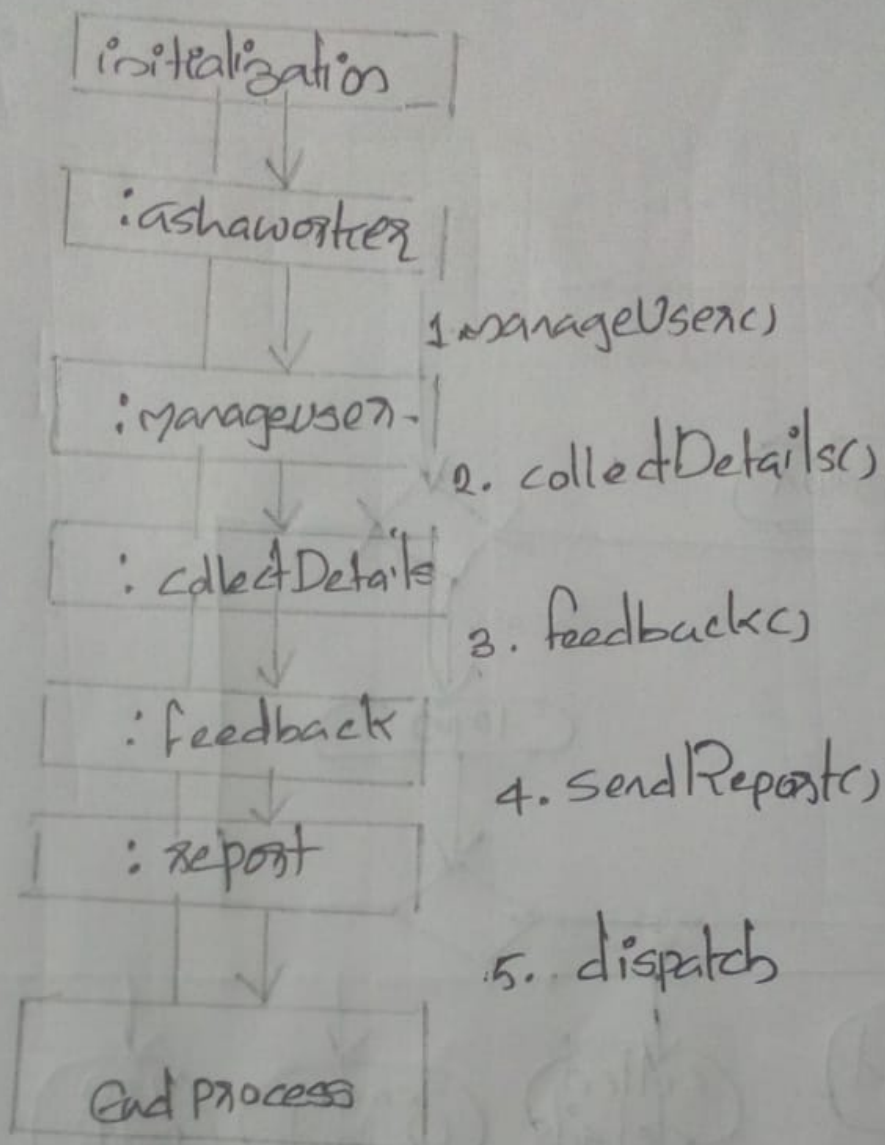 initialization
:ashaworker
1.manageUser()
:manageuser
2. collectDetails()
:collectDetails
3. feedback()
:feedback
4. sendReport()
:report
5. dispatch
End process